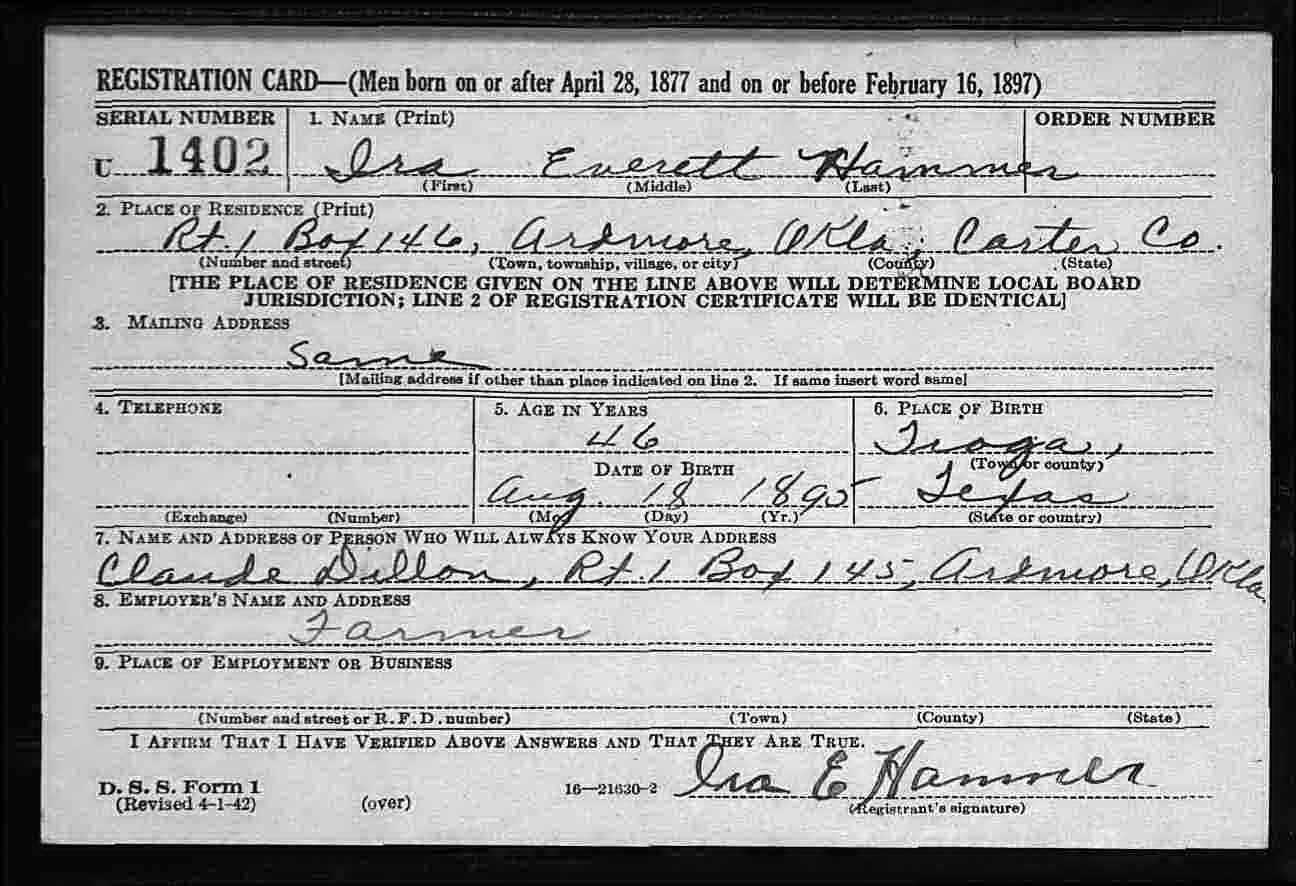 REGISTRATION CARD—(Men born on or after April 28, 1877 and on or before February 16, 1897)
SERIAL NUMBER 1. NAME (Print) ORDER NUMBER
U 1402 Ira Everett Hammer
(First) (Middle) (Last)
2. PLACE OF RESIDENCE (Print)
Rt. 1 Box 146, Ardmore, Okla, Carter Co.
(Number and street) (Town, township, village, or city) (County) (State)
[THE PLACE OF RESIDENCE GIVEN ON THE LINE ABOVE WILL DETERMINE LOCAL BOARD
JURISDICTION; LINE 2 OF REGISTRATION CERTIFICATE WILL BE IDENTICAL]
3. MAILING ADDRESS
Same
[Mailing address if other than place indicated on line 2. If same insert word same]
4. TELEPHONE 5. AGE IN YEARS 6. PLACE OF BIRTH
46 Tioga,
DATE OF BIRTH (Town or county)
Aug. 18 1895 Texas
(Exchange) (Number) (Mo.) (Day) (Yr.) (State or country)
7. NAME AND ADDRESS OF PERSON WHO WILL ALWAYS KNOW YOUR ADDRESS
Claude Dillon, Rt. 1 Box 145, Ardmore, Okla.
8. EMPLOYER'S NAME AND ADDRESS
Farmer
9. PLACE OF EMPLOYMENT OR BUSINESS
(Number and street or R. F. D. number) (Town) (County) (State)
I AFFIRM THAT I HAVE VERIFIED ABOVE ANSWERS AND THAT THEY ARE TRUE.
D. S. S. Form 1 16—21630-2 Ira E Hammer
(Revised 4-1-42) (over) (Registrant's signature)